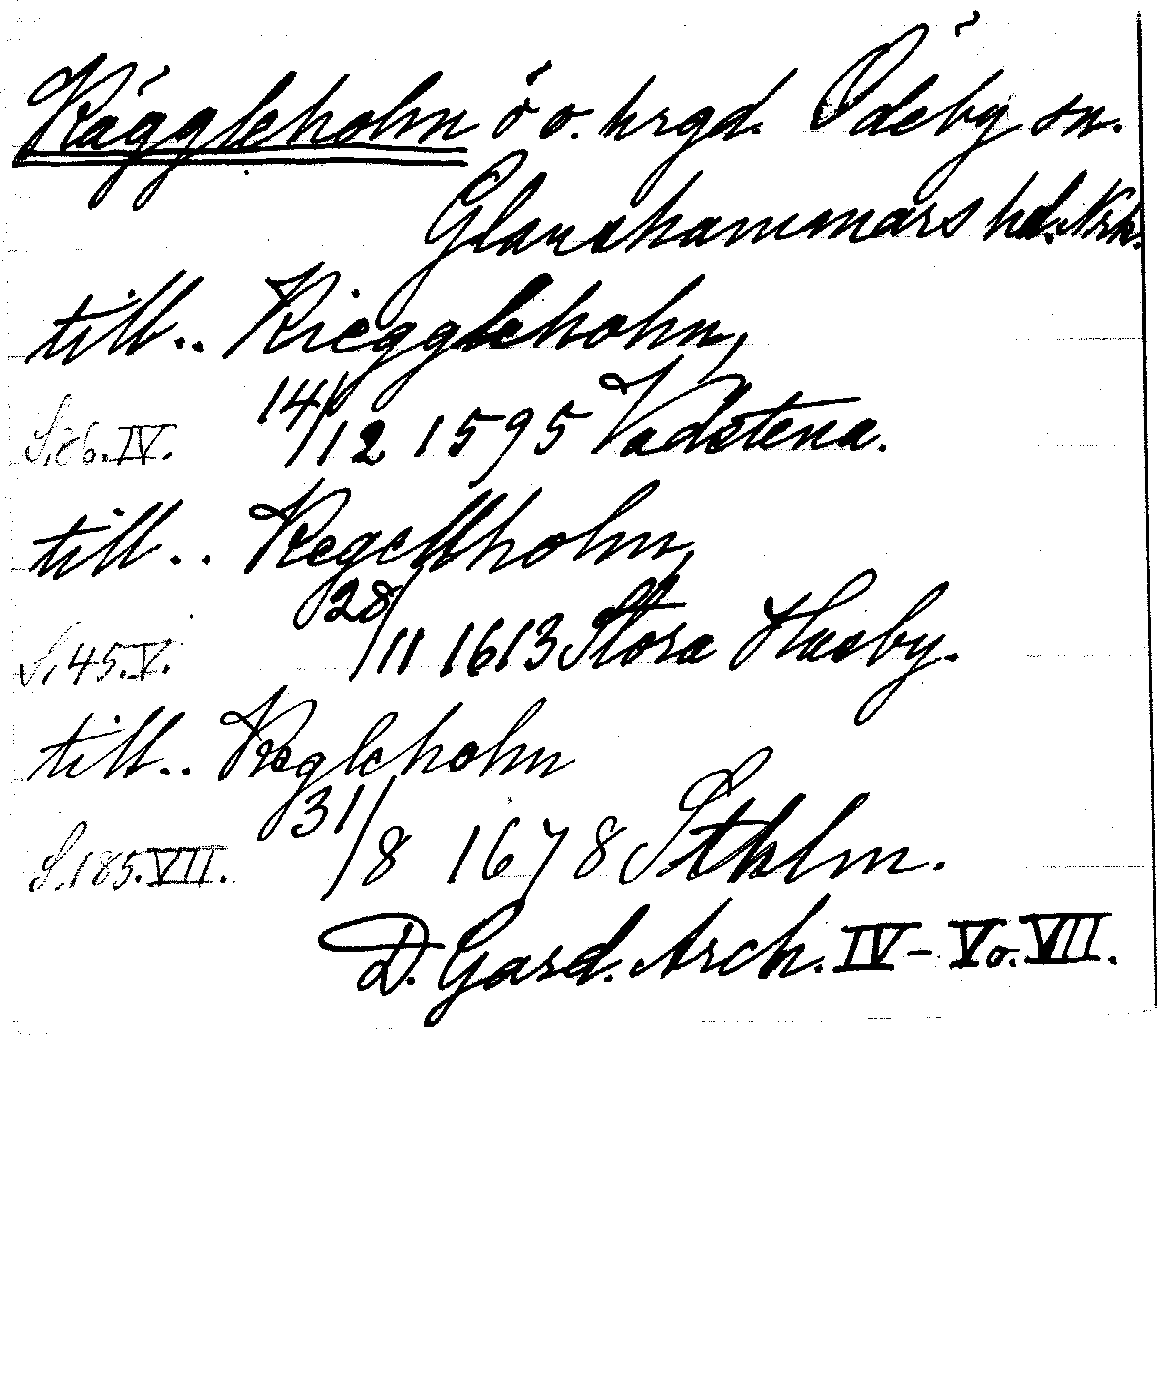 Käggleholm ö o. hrgd. Ödeby sn.
Glanshammars hd. Nrk.
till.. Kieggleholm,
S. 86. IV. 14/12 1595 Vadstena.
till.. Kegellholm,
S. 45. V. 28/11 1613 Stora Husby.
till.. Kegleholm
S. 185. VII. 31/8 1678 Sthlm.
D. Gard. Arch. IV - V o. VII.